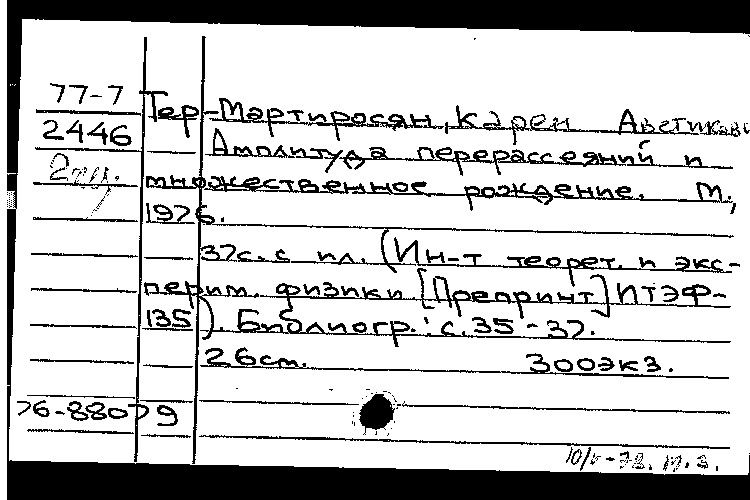 77-7
2446
2 экз.
Тер-Мартиросян, Карен Аветикови
Амплитуда перерассеяний и
множественное рождение. М.,
1976.
37с. с ил. (Ин-т теорет. и экс-
перим. физики [Препринт] ИТЭФ-
135). Библиогр.: с. 35-37.
26см. 300экз.
76-88079
10/V-78. М.З.